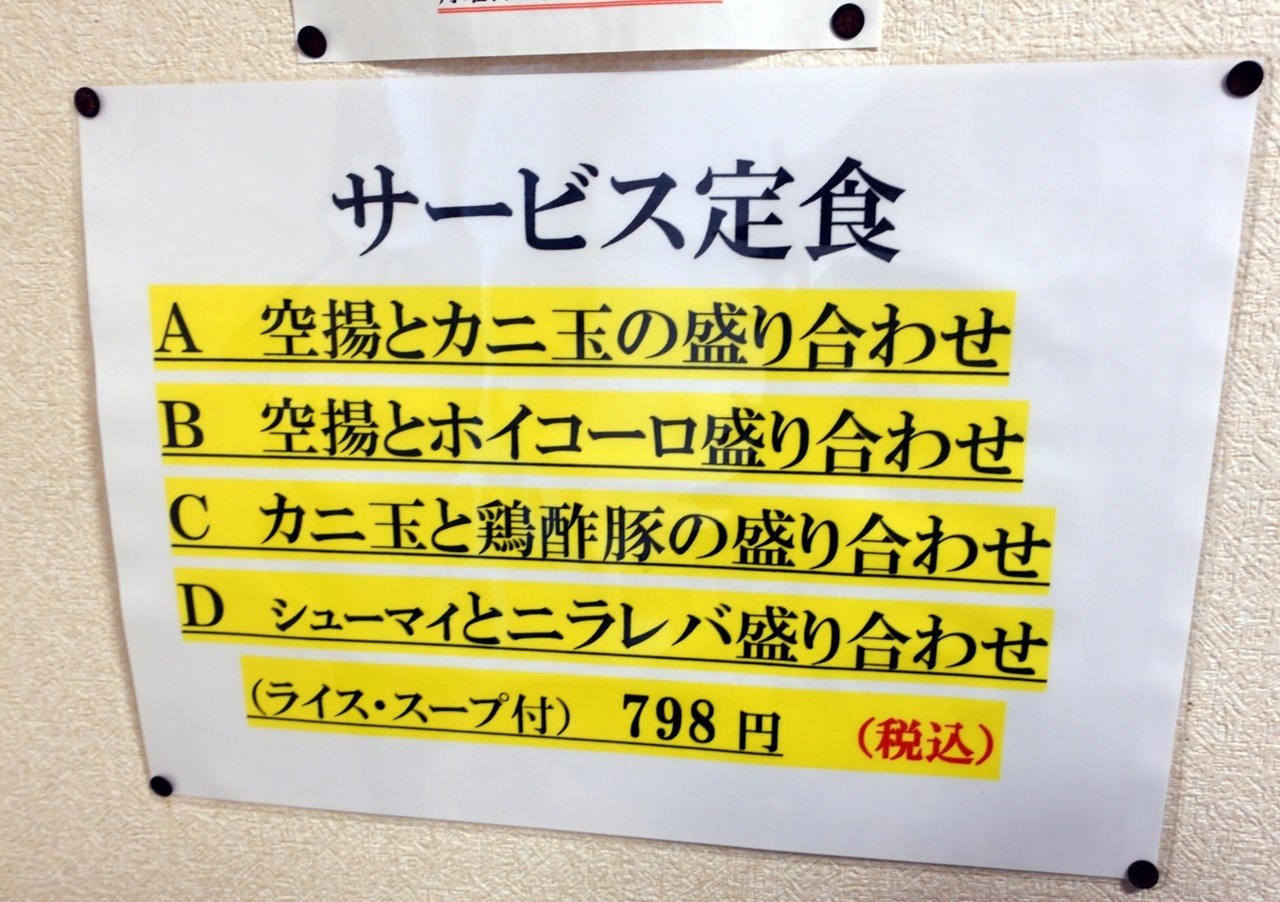 サービス定食
A 空揚とカニ玉の盛り合わせ
B 空揚とホイコーロ盛り合わせ
C カニ玉と鶏酢豚の盛り合わせ
D シューマイとニラレバ盛り合わせ
(ライス・スープ付) 798 円 (税込)